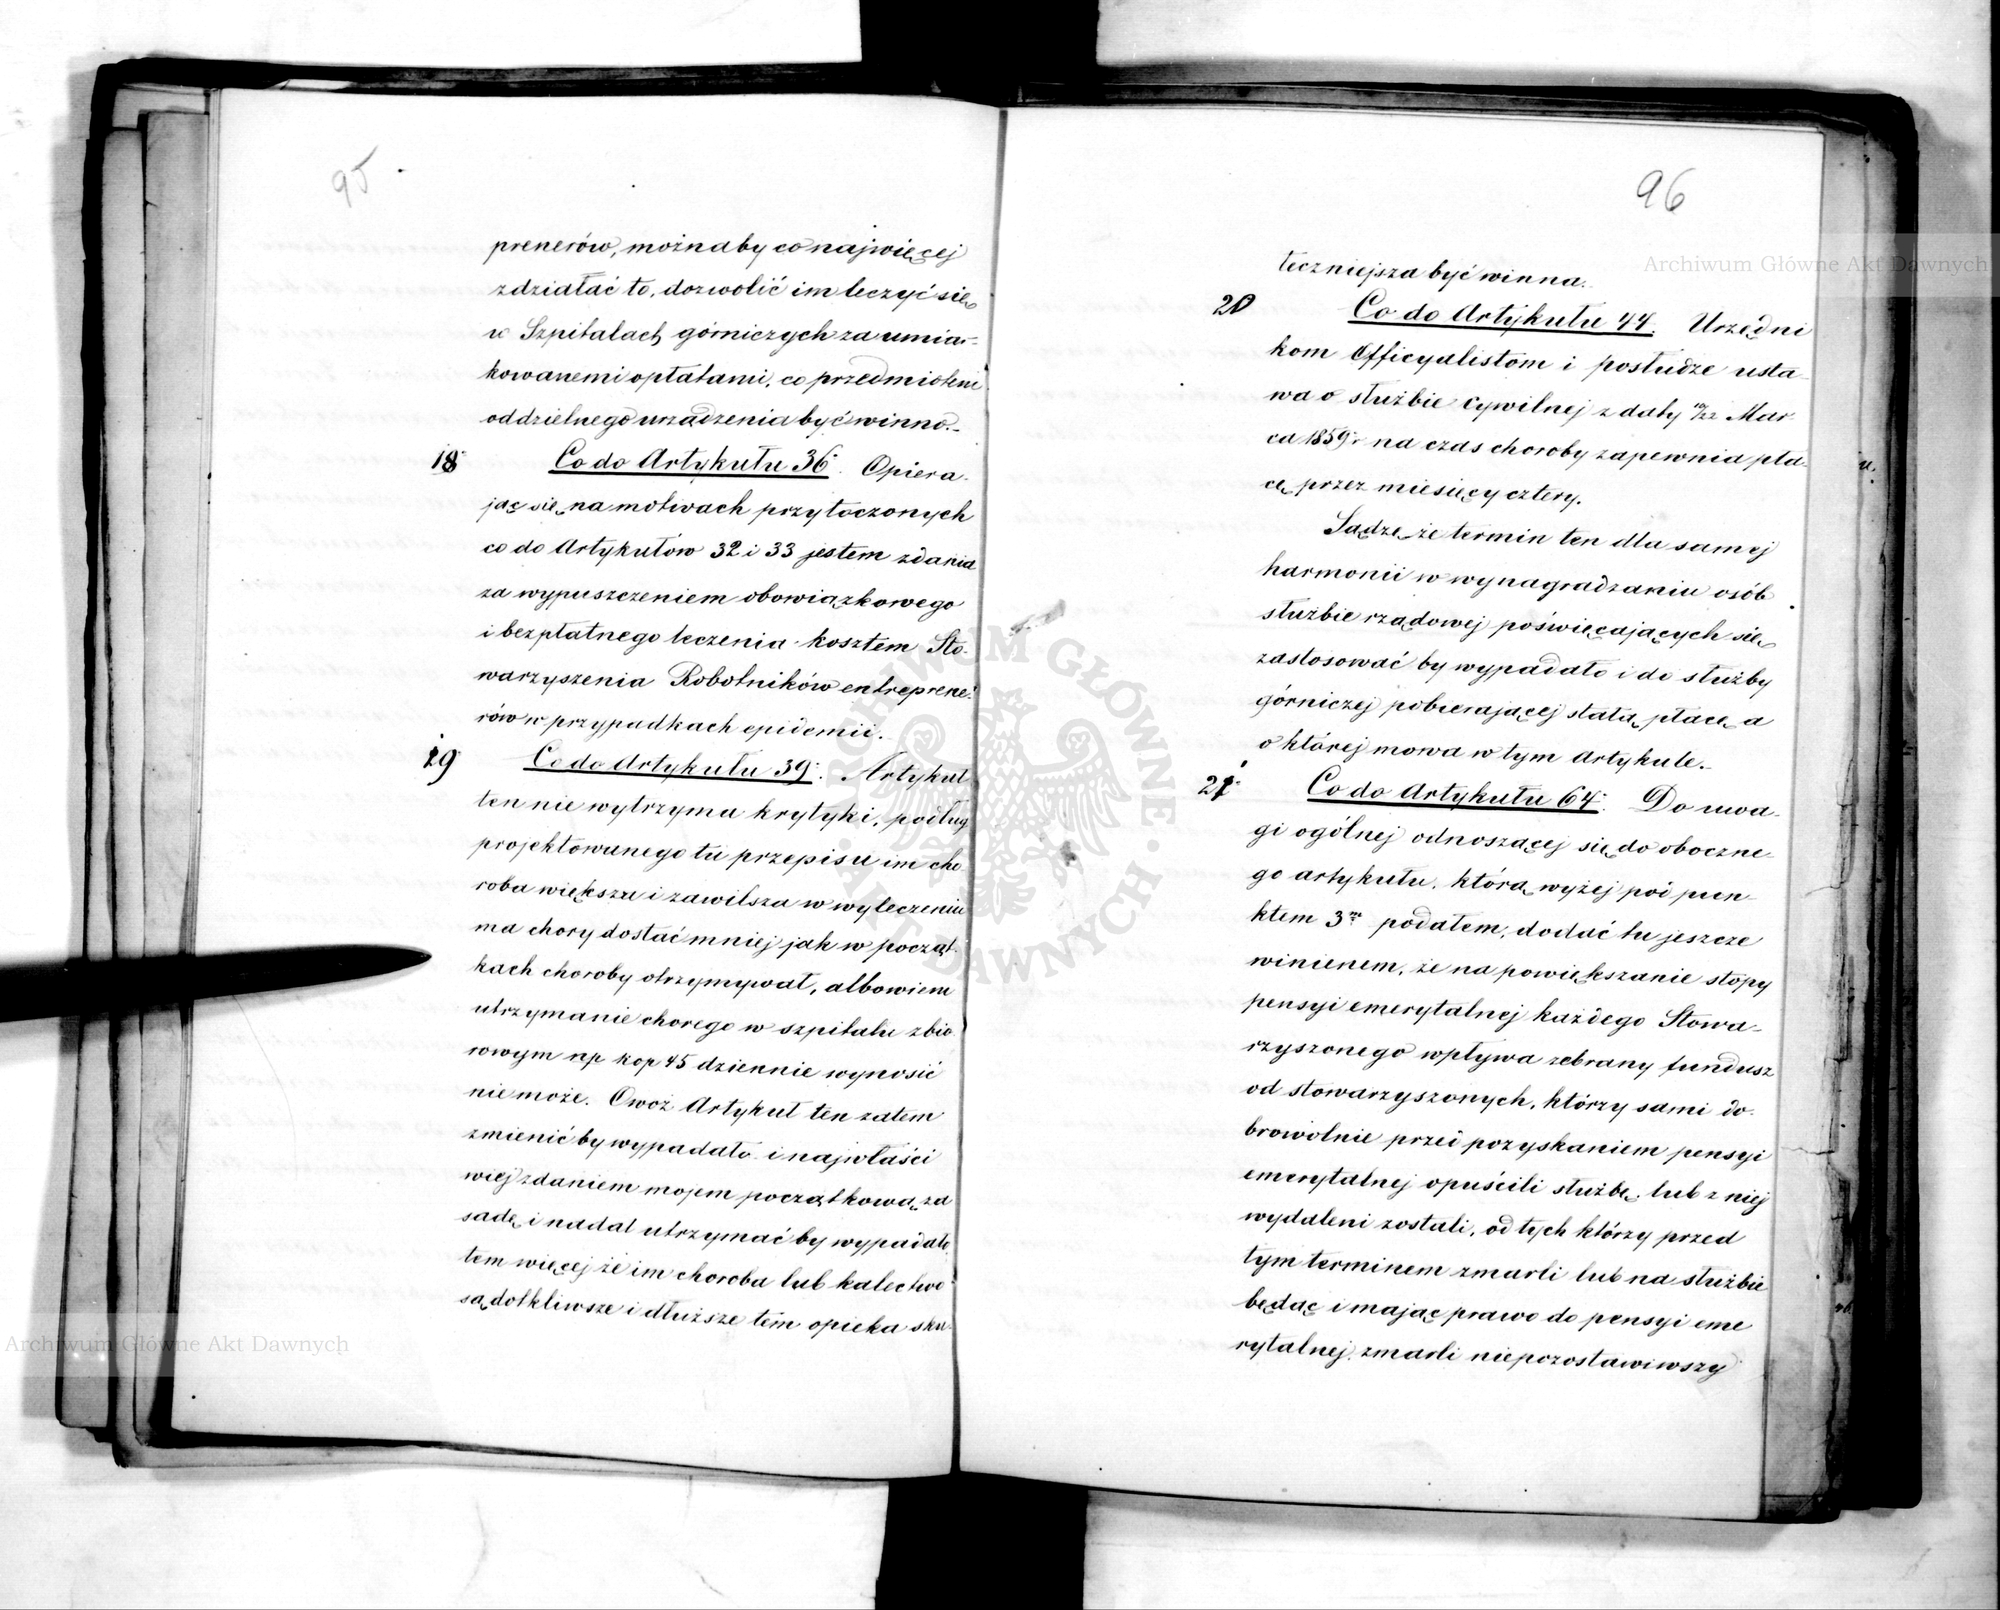 95
prenerów, możnaby co najwięcej
zdziałać to, dozwolić im leczyć się
w Szpitalach górniczych za umiar-
kowanemi opłatami, co przedmiotem
oddzielnego urządzenia być winno.-
18 Co do Artykułu 36. Opiera-
jąc się na motivach przytoczonych
co do Artykułów 32 i 33 jestem zdania
za wypuszczeniem obowiązkowego
i bezpłatnego leczenia kosztem Sto-
warzyszenia Robotników entreprene-
rów w przypadkach epidemii.
19 Co do Artykułu 39. Artykuł
ten nie wytrzyma krytyki, podług
projektowanego tu przepisu im cho
roba większa i zawilsza w wyleczeniu
ma chory dostać mniej jak w począt-
kach choroby otrzymywał, albowiem
utrzymanie chorego w szpitalu zbio
rowym np kop 45 dziennie wynosić
nie może. Owoż Artykuł ten zatem
zmienić by wypadało i najwłaści
wiej zdaniem mojem początkową za
sadę i nadal utrzymać by wypadało
tem więcej że im choroba lub kalectwo
są dotkliwsze i dłuższe tem opieka sku-
96
teczniejsza być winna.
20 Co do Artykułu 44. Urzędni
kom Officyalistom i posłudze usta-
wa o służbie cywilnej z daty 10/22 Mar-
ca 1859 r na czas choroby zapewnia pła-
cę przez miesięcy cztery.
Sądzę że termin ten dla samej
harmonii w wynagradzaniu osób
służbie rządowej poświęcających się
zastosować by wypadało i do służby
górniczej pobierającej stałą płacę a
o której mowa w tym Artykule.-
21 Co do Artykułu 64. Do uwa-
gi ogólnej odnoszącej się do oboczne-
go artykułu, którą wyżej pod pun-
ktem 3m podałem, dodać tu jeszcze
winienem, że na powiększanie stopy
pensyi emerytalnej każdego Stowa-
rzyszonego wpływa zebrany fundusz
od stowarzyszonych, którzy sami do-
browolnie przed pozyskaniem pensyi
emerytalnej opuścili służbę, lub z niej
wydaleni zostali, od tych którzy przed
tym terminem zmarli lub na służbie
będąc i mając prawo do pensyi eme
rytalnej, zmarli niepozostawiwszy
Archiwum Główne Akt Dawnych
Archiwum Główne Akt Dawnych
ARCHIWUM GŁÓWNE AKT DAWNYCH